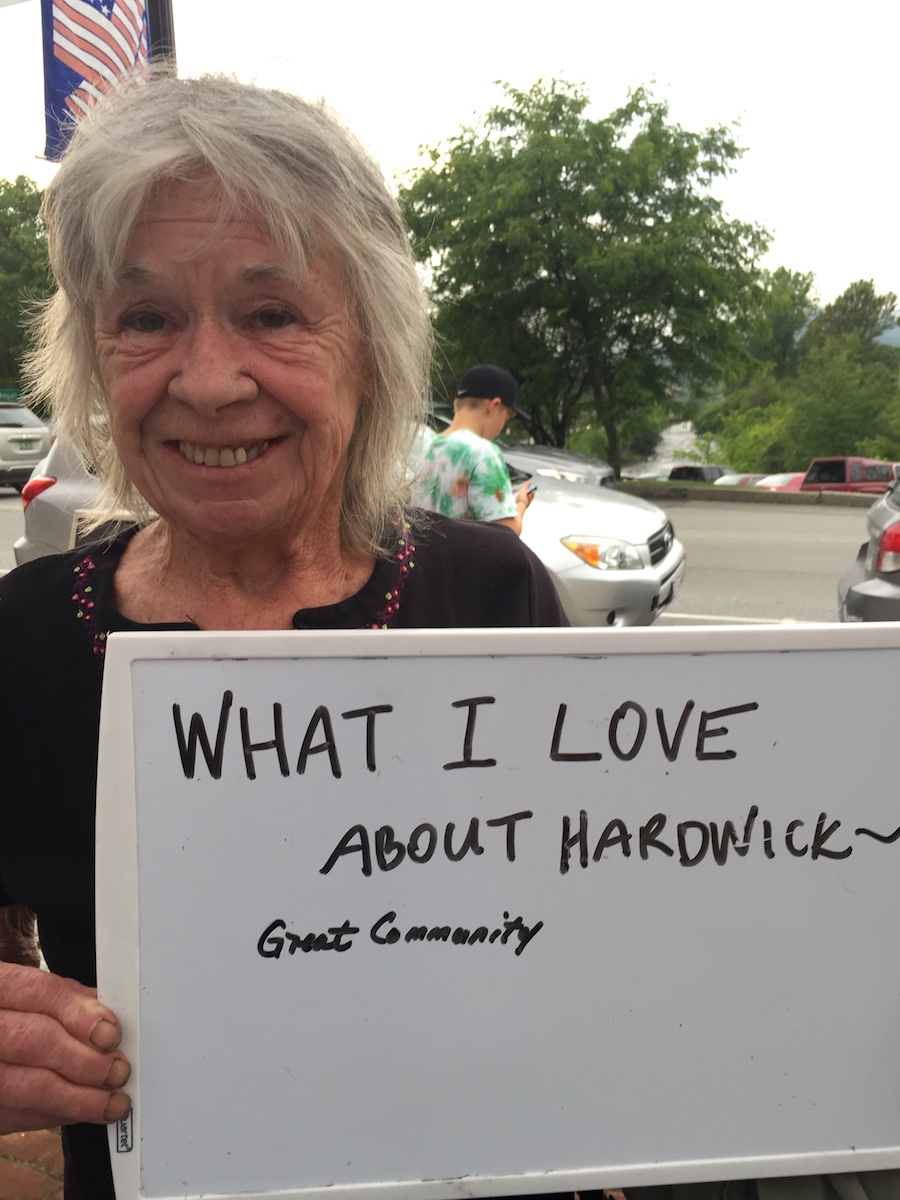 WHAT I LOVE
ABOUT HARDWICK~
Great Community
Quartet